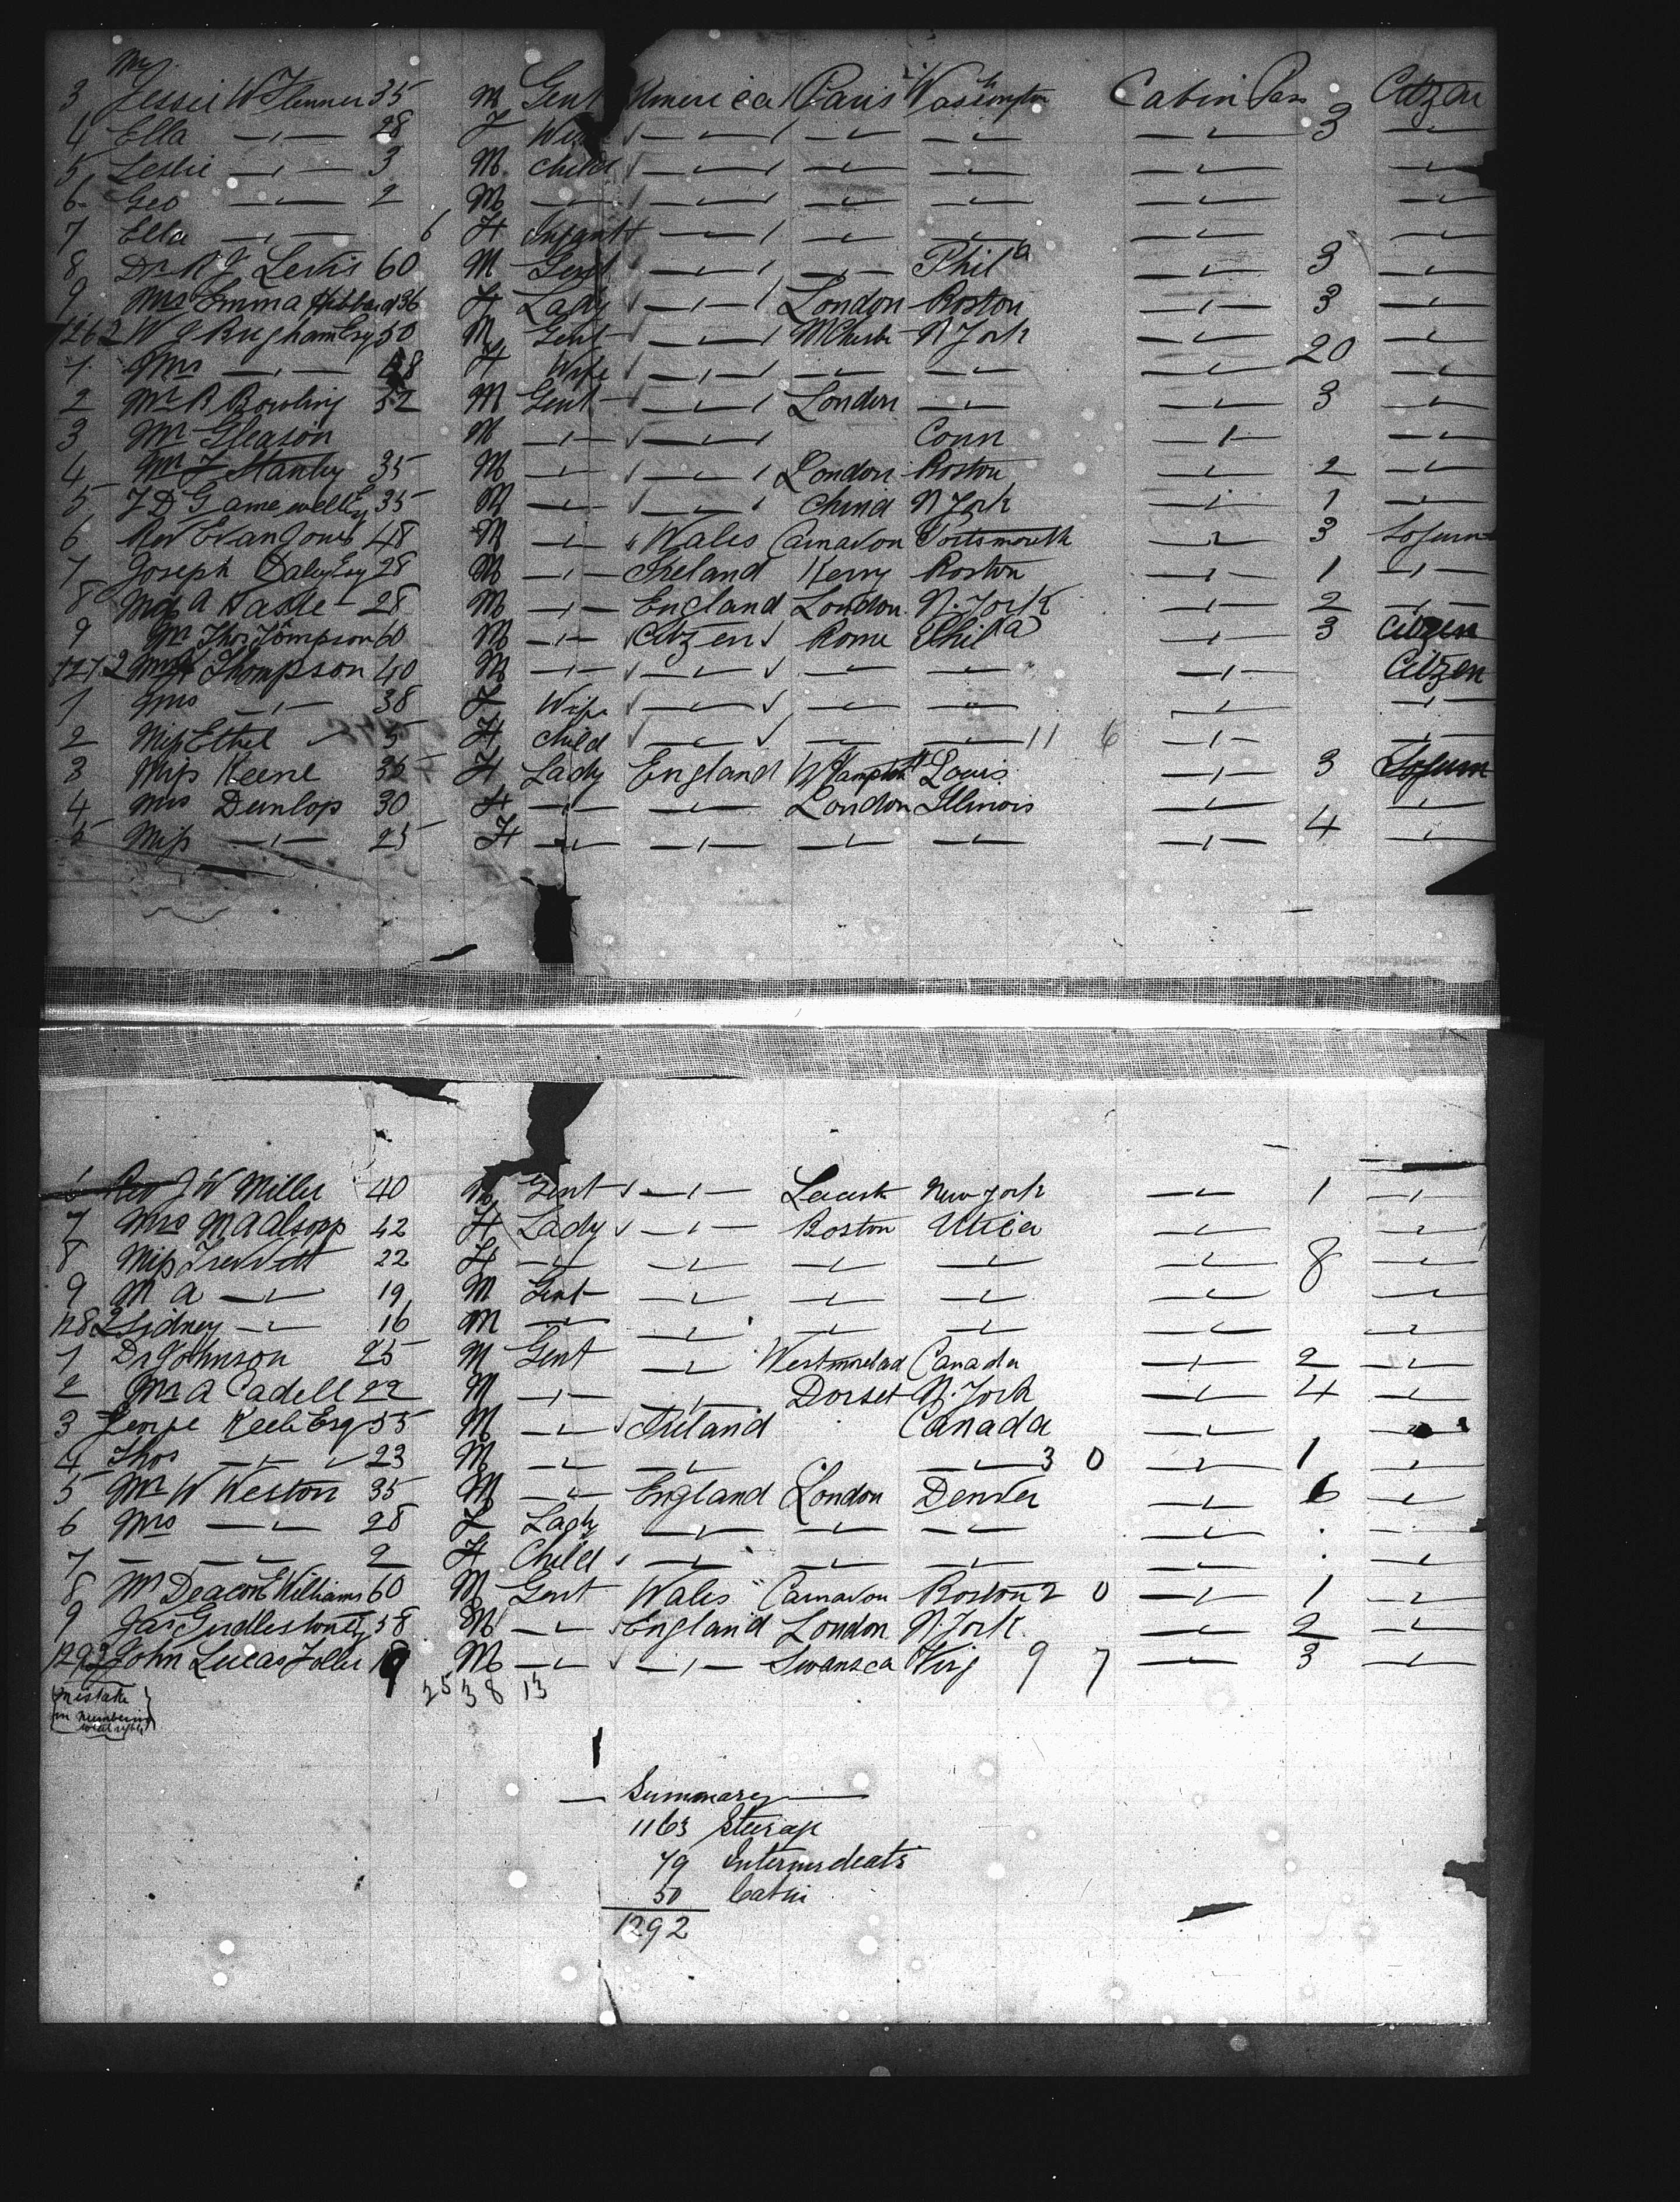 Mr
3 Jessie W Flenner 35 M Gent America Paris Washington Cabin Pas 3 Citzen
4 Ella —ı— 28 F Wife —ı— —ı— —ı— —ı— 3 —ı—
5 Leslie —ı— 3 M Child —ı— —ı— —ı— —ı— —ı—
6 Geo —ı— 2 M —ı— —ı— —ı— —ı— —ı— —ı—
7 Ella —ı— 6 F Infant —ı— —ı— —ı— —ı— —ı—
8 Dr R J Levis 60 M Gent —ı— —ı— Phila —ı— 3 —ı—
9 Mrs Emma Hibbard 36 F Lady —ı— London Boston —ı— 3 —ı—
1262 W J Brigham Esq 50 M Gent —ı— N York —ı— —ı—
1 Mrs —ı— 48 F Wife —ı— —ı— —ı— —ı— 20 —ı—
2 Mr B Bowling 52 M Gent —ı— London —ı— —ı— 3 —ı—
3 Mr Gleason M —ı— —ı— Conn —ı— —ı—
4 Mr J Stanley 35 M —ı— —ı— London Boston —ı— 2 —ı—
5 F D Gamewell Esq 35 M —ı— —ı— China N York —ı— 1 —ı—
6 Rev Evan Jones 48 M —ı— Wales Carnavon Portsmouth —ı— 3 Sojurn
7 Joseph Daley Esq 28 M —ı— Ireland Kerry Boston —ı— 1 —ı—
8 A 28 M —ı— England London N. York —ı— 2 —ı—
9 Mr Thos Tompson 60 M —ı— Citzen Rome Phila —ı— 3 Citzen
1272 Thompson 40 M —ı— —ı— —ı— —ı— —ı— Citzen
1 Mrs —ı— 38 F Wife —ı— —ı— —ı— —ı— —ı—
2 Miss Ethel 5 F Child —ı— —ı— —ı— 11 6 —ı— —ı—
3 Miss Keene 35 F Lady England WHampton St Louis —ı— 3 Sojurn
4 Mrs Dunlop 30 F —ı— —ı— London Illinois —ı— —ı—
5 Miss —ı— 25 F —ı— —ı— —ı— —ı— —ı— 4 —ı—
6 Rev J W Miller 40 M Gent —ı— New York —ı— 1 —ı—
7 Mrs M A Alsopp 42 F Lady —ı— Boston Utica —ı— —ı—
8 Miss Trevvett 22 F —ı— —ı— —ı— —ı— —ı— 8 —ı—
9 M A —ı— 19 M Gent —ı— —ı— —ı— —ı— —ı—
1282 Sidney —ı— 16 M —ı— —ı— —ı— —ı— —ı— —ı—
1 Dr Johnson 25 M Gent —ı— Westmorelad Canada —ı— 2 —ı—
2 Mr A Cadell 22 M —ı— —ı— Dorset N. York —ı— 4 —ı—
3 George Esq 55 M —ı— Ireland Canada —ı— —ı—
4 Thos —ı— 23 M —ı— —ı— —ı— 3 0 —ı— 1 —ı—
5 Mr W Weston 35 M —ı— England London Denver —ı— 6 —ı—
6 Mrs —ı— 28 F Lady —ı— —ı— —ı— —ı—
7 — —ı— 2 F Child —ı— —ı— —ı— —ı— —ı—
8 Mr Deacon E Williams 60 M Gent Wales Carnavon Boston 2 0 —ı— 1 —ı—
9 Jas Girdlestone Esq 58 M —ı— England London N. York —ı— 2 —ı—
1292 John Lucas 19 M —ı— —ı— Swansea Virg 9 7 —ı— 3 —ı—
25 38 13
Mistake
in numbering
Summary
1163 Steerage
79 Intermediate
50 Cabin
1292